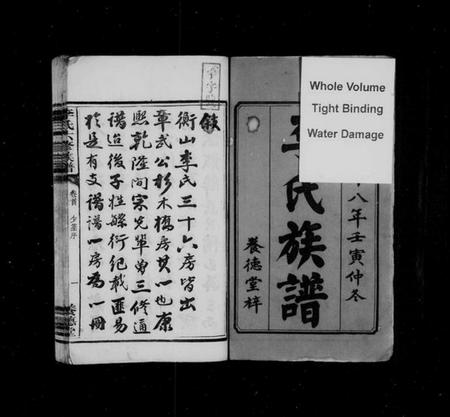 Whole Volume
Tight Binding
Water Damage
八年壬寅仲冬
李氏族譜
養德堂梓
敘
衡山李氏三十六房皆出
章武公杉木橋房其一也康
熙乾隆間宋先輩曾三修通
譜迨後子姓繁衍紀載匪易
於是有支譜譜一房為一冊
卷首
序
一
養德堂